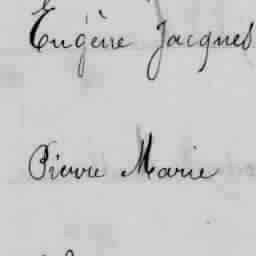 Eugène Jacques
Pierre Marie